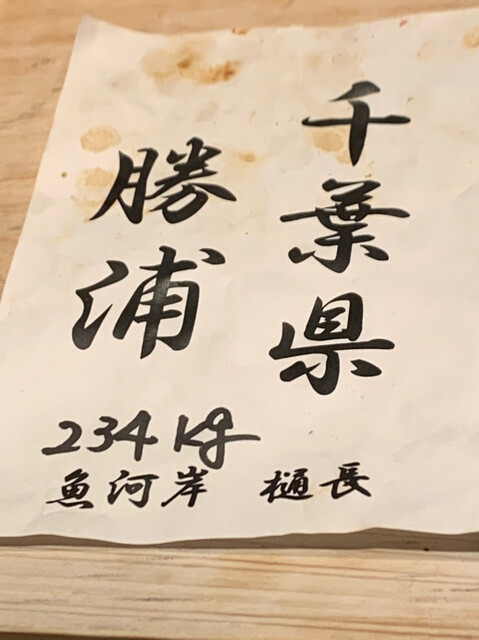 千葉県
勝浦
234kg
魚河岸 樋長